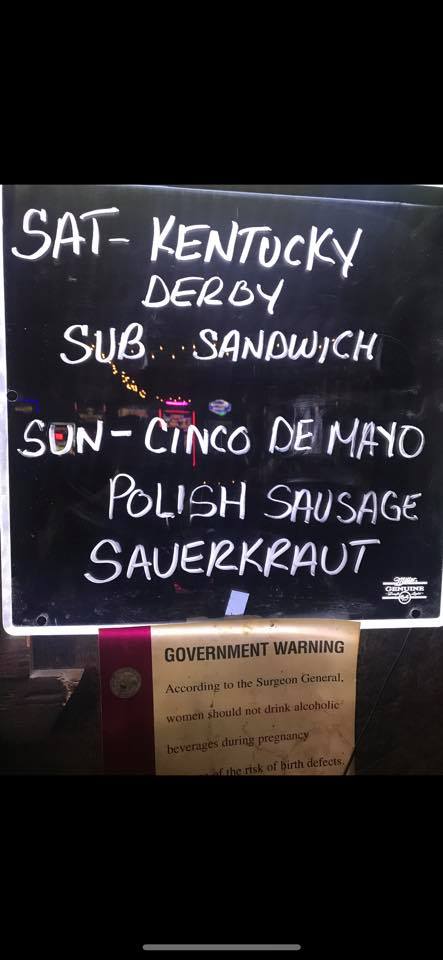 SAT- KENTUCKY
DERBY
SUB SANDWICH
SUN- CINCO DE MAYO
POLISH SAUSAGE
SAUERKRAUT
Miller
GENUINE
GOVERNMENT WARNING
According to the Surgeon General,
women should not drink alcoholic
beverages during pregnancy
of the risk of birth defects.